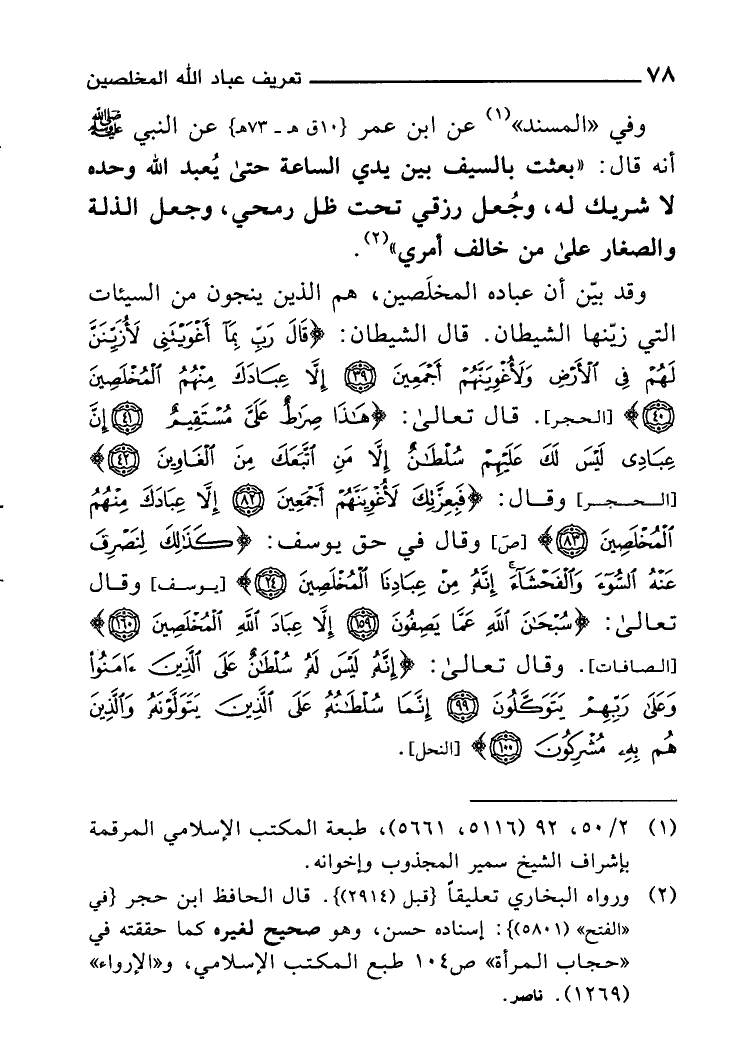 ٧٨ ــــــــــــــــــــــــــــــــــــ تعريف عباد الله المخلصين
وفي «المسند»(١) عن ابن عمر {١٠ق هـ ـ ٧٣هـ} عن النبي ﷺ
أنه قال: «بعثت بالسيف بين يدي الساعة حتىٰ يُعبد الله وحده
لا شريك له، وجُعل رزقي تحت ظل رمحي، وجعل الذلة
والصغار علىٰ من خالف أمري»(٢).
وقد بيّن أن عباده المخلَصين، هم الذين ينجون من السيئات
التي زيّنها الشيطان. قال الشيطان: ﴿قَالَ رَبِّ بِمَآ أَغْوَيْتَنِى لَأُزَيِّنَنَّ
لَهُمْ فِى ٱلْأَرْضِ وَلَأُغْوِيَنَّهُمْ أَجْمَعِينَ ﴿٣٩﴾ إِلَّا عِبَادَكَ مِنْهُمُ ٱلْمُخْلَصِينَ
﴿٤٠﴾﴾ [الحجر]. قال تعالىٰ: ﴿هَٰذَا صِرَٰطٌ عَلَىَّ مُسْتَقِيمٌ ﴿٤١﴾ إِنَّ
عِبَادِى لَيْسَ لَكَ عَلَيْهِمْ سُلْطَٰنٌ إِلَّا مَنِ ٱتَّبَعَكَ مِنَ ٱلْغَاوِينَ ﴿٤٢﴾﴾
[الحجر] وقال: ﴿فَبِعِزَّتِكَ لَأُغْوِيَنَّهُمْ أَجْمَعِينَ ﴿٨٢﴾ إِلَّا عِبَادَكَ مِنْهُمُ
ٱلْمُخْلَصِينَ ﴿٨٣﴾﴾ [صۤ] وقال في حق يوسف: ﴿كَذَٰلِكَ لِنَصْرِفَ
عَنْهُ ٱلسُّوٓءَ وَٱلْفَحْشَآءَ ۚ إِنَّهُۥ مِنْ عِبَادِنَا ٱلْمُخْلَصِينَ ﴿٢٤﴾﴾ [يوسف] وقال
تعالىٰ: ﴿سُبْحَٰنَ ٱللَّهِ عَمَّا يَصِفُونَ ﴿١٥٩﴾ إِلَّا عِبَادَ ٱللَّهِ ٱلْمُخْلَصِينَ ﴿١٦٠﴾﴾
[الصافات]. وقال تعالىٰ: ﴿إِنَّهُۥ لَيْسَ لَهُۥ سُلْطَٰنٌ عَلَى ٱلَّذِينَ ءَامَنُوا۟
وَعَلَىٰ رَبِّهِمْ يَتَوَكَّلُونَ ﴿٩٩﴾ إِنَّمَا سُلْطَٰنُهُۥ عَلَى ٱلَّذِينَ يَتَوَلَّوْنَهُۥ وَٱلَّذِينَ
هُم بِهِۦ مُشْرِكُونَ ﴿١٠٠﴾﴾ [النحل].
(١) ٥٠/٢، ٩٢ (٥١١٦، ٥٦٦١)، طبعة المكتب الإسلامي المرقمة
بإشراف الشيخ سمير المجذوب وإخوانه.
(٢) ورواه البخاري تعليقاً {قبل (٢٩١٤)}. قال الحافظ ابن حجر {في
«الفتح» (٥٨٠١)}: إسناده حسن، وهو صحيح لغيره كما حققته في
«حجاب المرأة» ص١٠٤ طبع المكتب الإسلامي، و«الإرواء»
(١٢٦٩). ناصر.